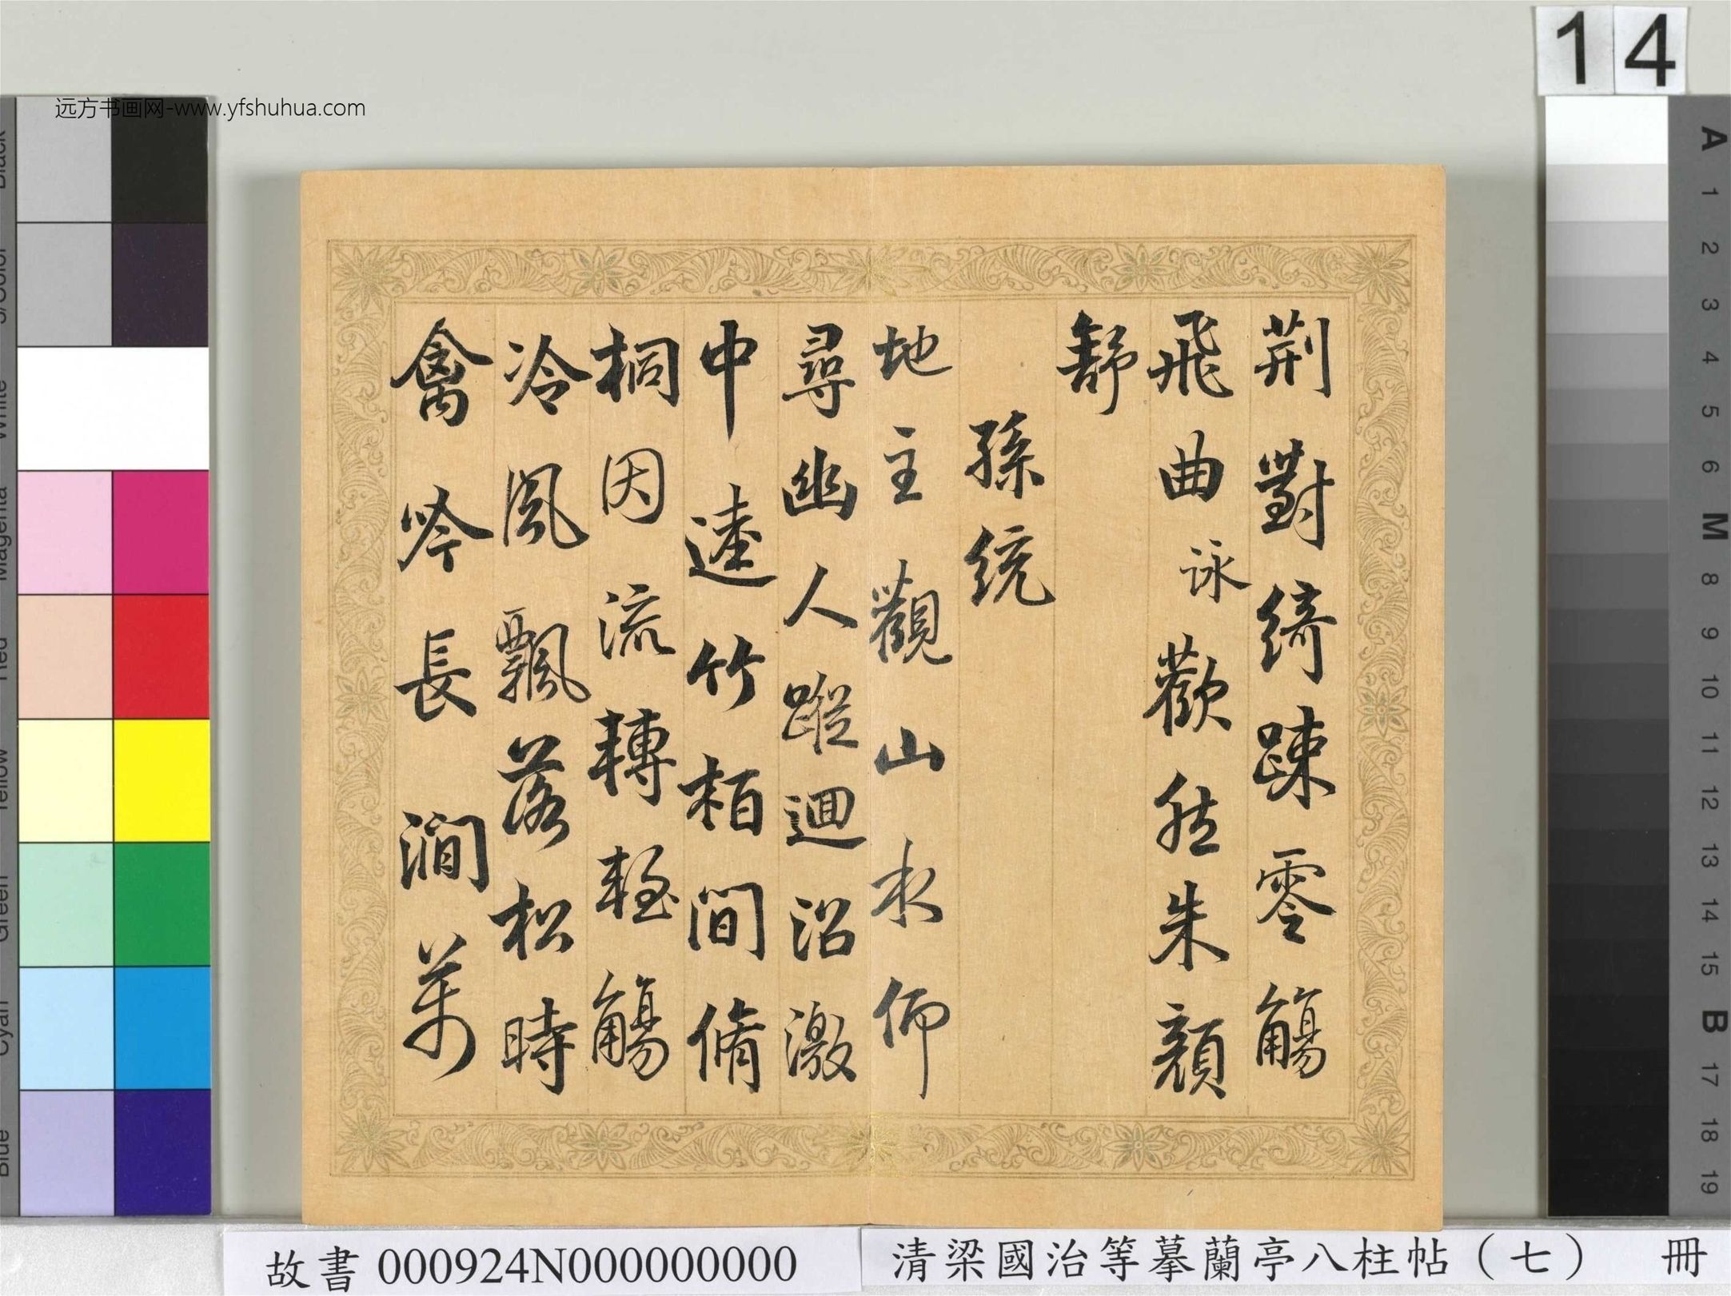 远方书画网-www.yfshuhua.com
14
荆對綺疎零觴
飛曲詠歡然朱顔
舒
孫統
地主觀山水仰
尋幽人蹤迴沼激
中逵竹柏間脩
桐因流轉輕觴
冷風飄落松時
禽吟長澗萬
Black
3/Color
White
Magenta
Red
Yellow
Green
Cyan
Blue
A
1
2
3
4
5
6
M
8
9
10
11
12
13
14
15
B
17
18
19
故書 000924N000000000
清梁國治等摹蘭亭八柱帖（七） 冊